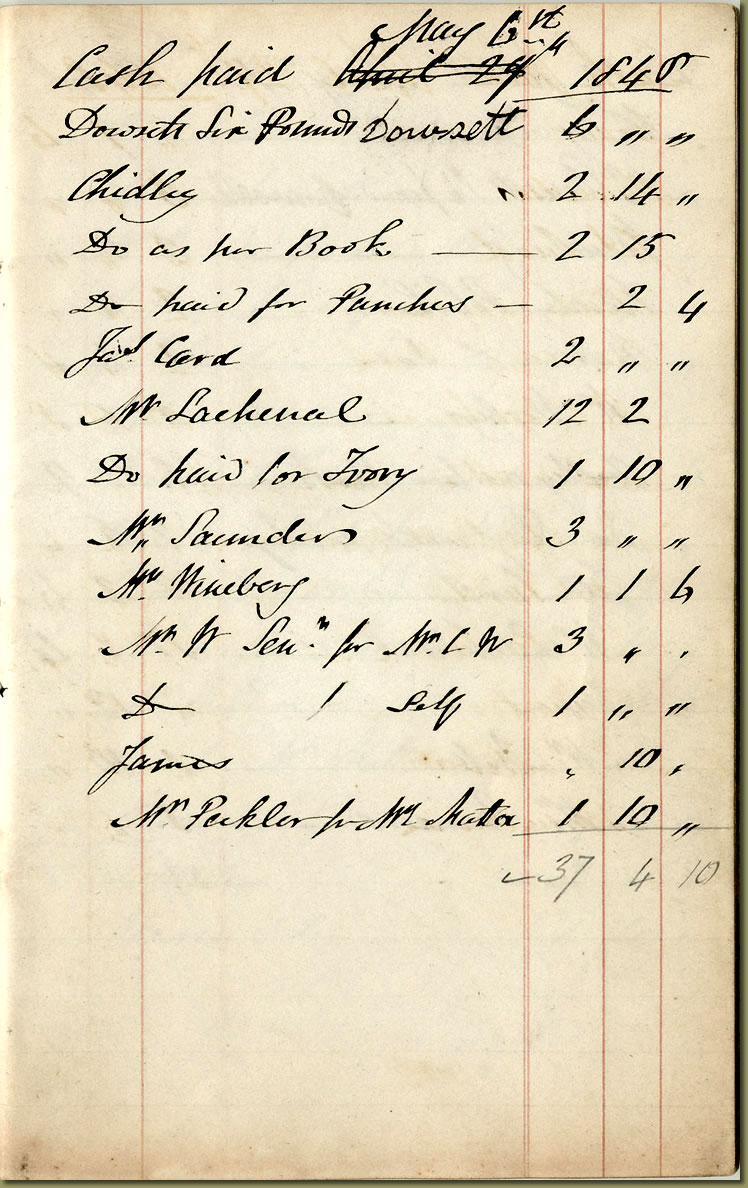 May 6th
Cash paid April 29th 1848
Dowsett Six Pounds Dowsett 6 " "
Chidley 2 14 "
Do as per Book — 2 15
Do paid for Punches — 2 4
Jas Card 2 " "
Mr Lachenal 12 2
Do paid for Ivory 1 10 "
Mrs Saunders 3 " "
Mr Wineberg 1 1 6
Mr W Senr for Mr C W 3 " "
Do / Self 1 " "
James " 10 "
Mr Peckler for Mr 1 10 "
37 4 10